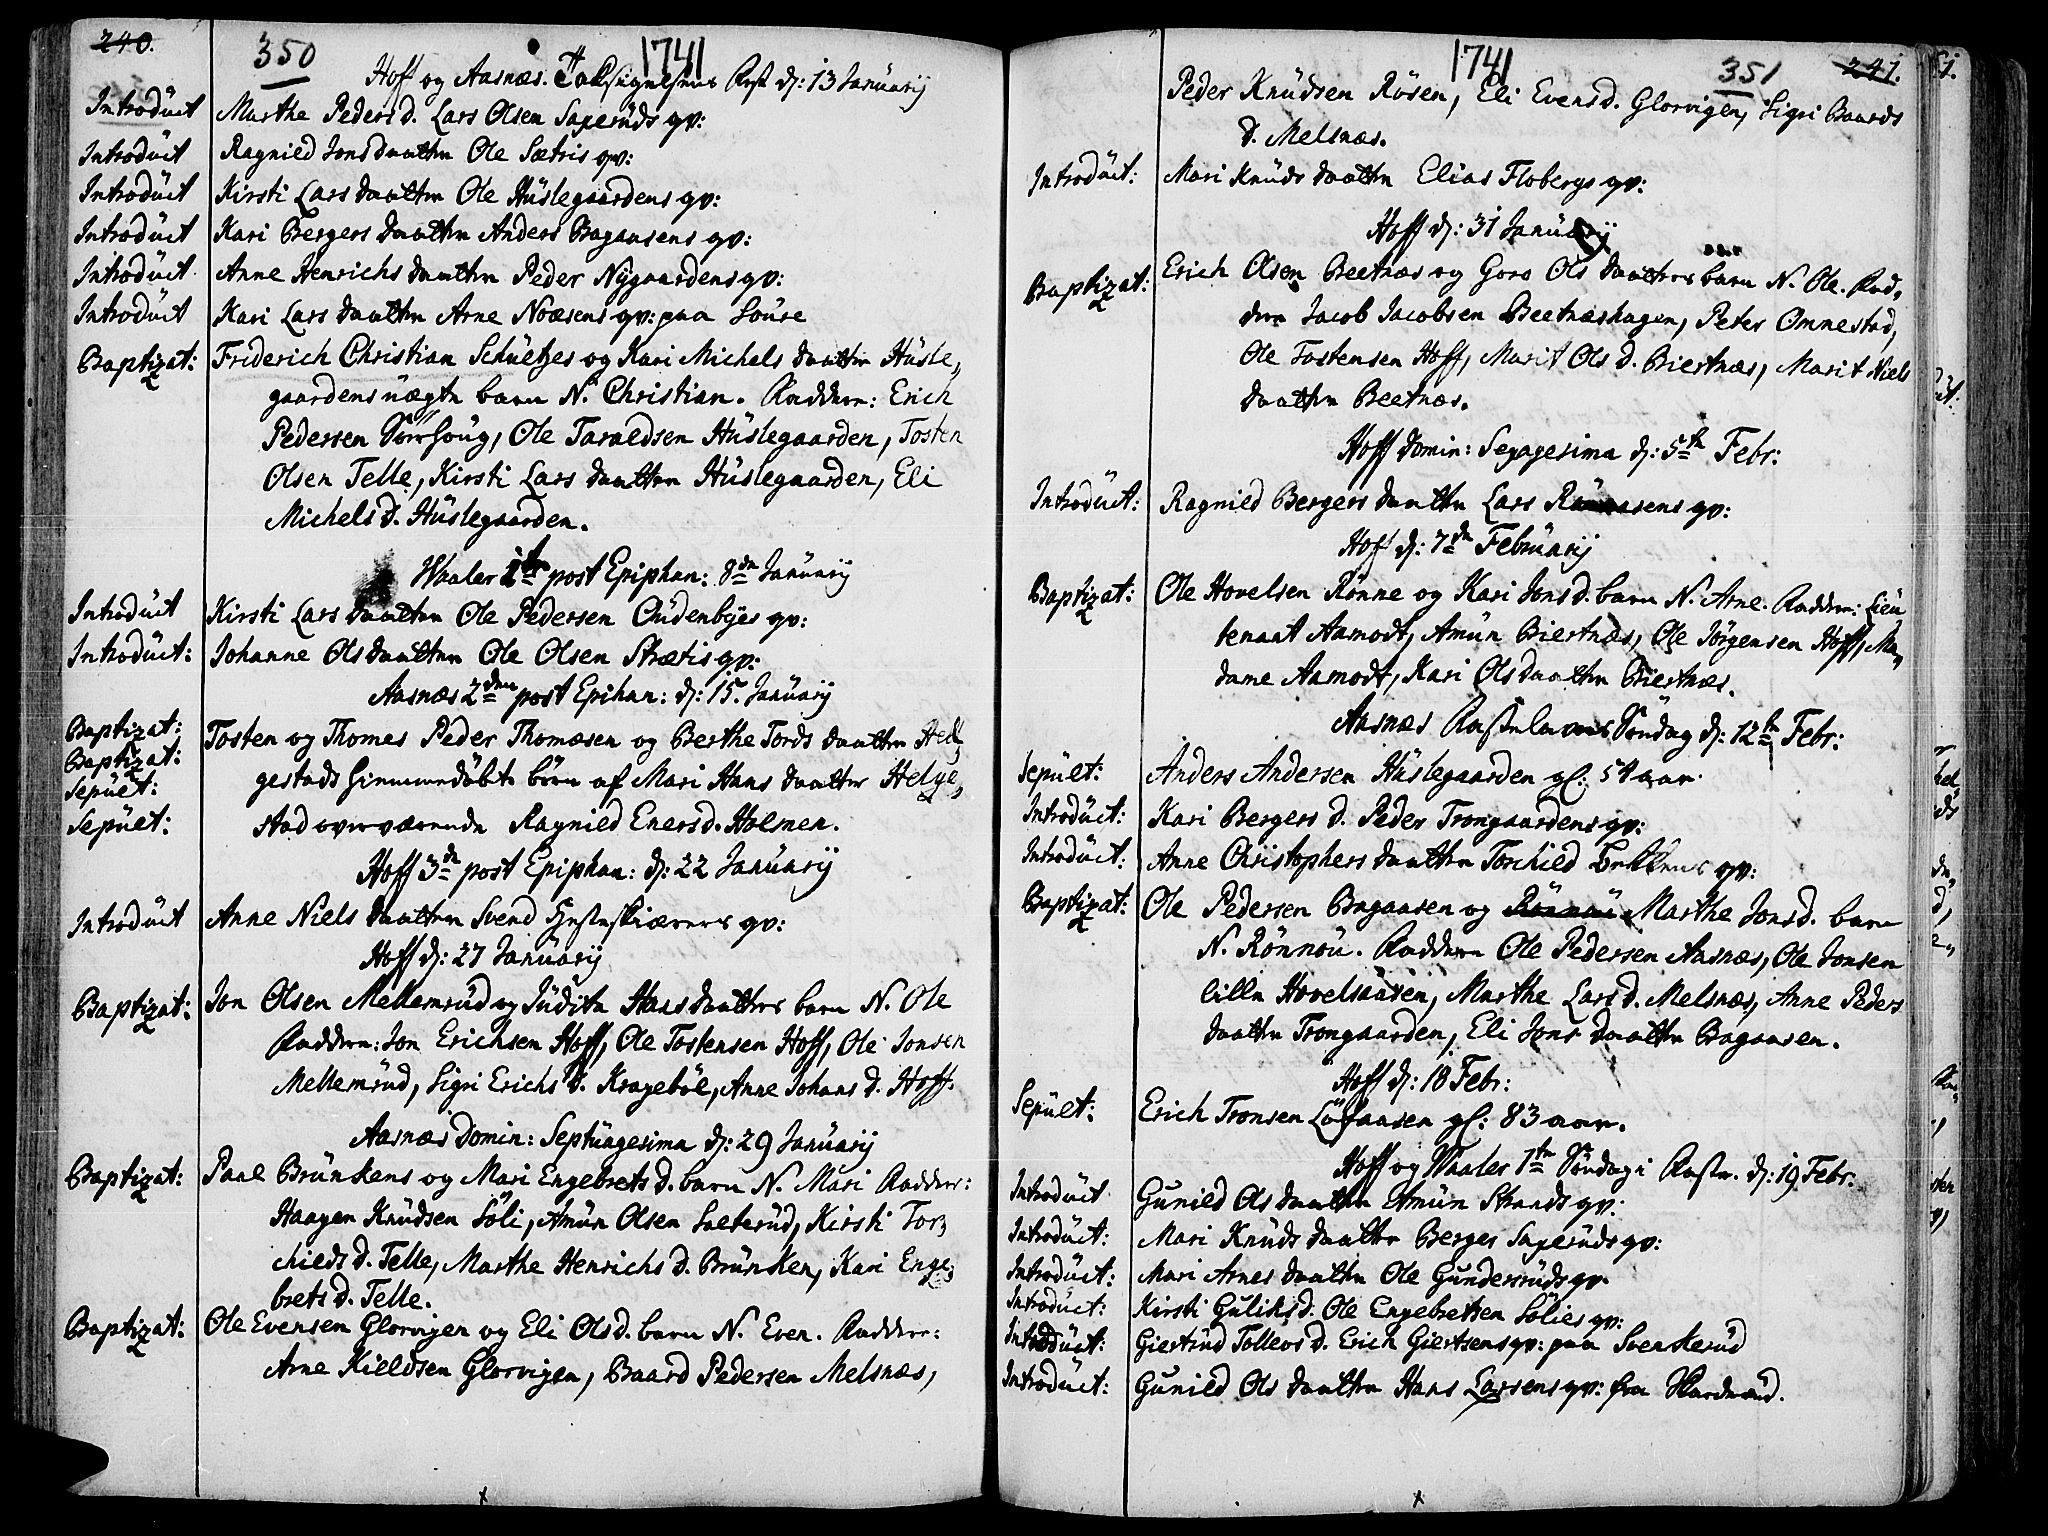 240.
350
1741
Hoff og Aasnæs. Taksigelsens Fest d: 13 Januarij
Introduit Marthe Peders d. Lars Olsen Saxeruds qv:
Introduit Ragnild Jons daatter Ole Sætris qv:
Introduit Kirsti Lars daatter Ole Huslegaardens qv:
Introduit Kari Bergers daatter Anders Bagaasens qv:
Introduit Anne Henrichs daatter Peder Nygaardens qv:
Introduit Kari Lars daatter Arne Noæsens qv: paa
Baptizat: Friderich Christian Schultzes og Kari Michels daatter Husle,
gaardens uægte barn N. Christian. Faddere: Erich
Pedersen Sørhoug, Ole Taraldsen Huslegaarden, Tosten
Olsen Telle, Kirsti Lars daatter Huslegaarden, Eli
Michels d. Huslegaarden.
Waaler 1ste post Epiphan: 8de Januarij
Introduit Kirsti Lars daatter Ole Pedersen Oudenbyes qv:
Introduit: Johanne Ols daatter Ole Olsen Strætis qv:
Aasnæs 2den post Epihan: d: 15. Januarij
Baptizat: Tosten og Thomes Peder Thomæsen og Berthe Tords daatter Hel,
Baptizat:
Sepult: gestads hiemmedøbte børn af Mari Hans daatter Helge,
Sepult: stad overværende Ragnild Eners d. Holmen.
Hoff 3de post Epiphan: d: 22 Januarij
Introduit Anne Niels daatter Svend Hesteskiærers qv:
Hoff d: 27 Januarij
Baptizat: Jon Olsen Mellemrud og Judita Hans daatters barn N. Ole
Faddere: Jon Erichsen Hoff, Ole Tostensen Hoff, Ole Jonsen
Mellemrud, Sigri Erichs d. Kragebøl, Anne Johans d. Hoff.
Aasnæs Domin: Septuagesima d: 29 Januarij
Baptizat: Paal Brunkens og Mari Engebrets d. barn N. Mari Faddere:
Haagen Knudsen Soli, Amun Olsen Sæterud, Kirsti Tor,
chields d. Telle, Marthe Henrichs d. Brunken, Kari Enge,
brets d. Telle.
Baptizat: Ole Evensen Glorvigen og Eli Ols d. barn N. Even. Faddere:
Arne Kieldsen Glorvigen, Baard Pedersen Melsnæs,
1741
351
241.
Peder Knudsen Røsen, Eli Evens d. Glorvigen, Sigri Baards
d. Melsnæs.
Introduit: Mari Knuds daatter Elias Flobergs qv:
Hoff d: 31 Januarij
Baptizat: Erich Olsen Beetnæs og Goro Ols daatters barn N. Ole. Fad,
dere Jacob Jacobsen Beetnæshagen, Peter Omnestad,
Ole Tostensen Hoff, Marit Ols d. Biertnæs, Marit Niels
daatter Beetnæs.
Hoff Domin: Sexagesima d: 5te Febr:
Introduit: Ragnild Bergers daatter Lars qv:
Hoff d: 7de Februarij
Baptizat: Ole Hovelsen Rønne og Kari Jons d. barn N. Arne. Faddere: Lieu
tenant Aamodt, Amun Biertnæs, Ole Jörgensen Hoff, Ma,
dame Aamodt, Kari Ols daatter Biertnæs.
Aasnæs Fastelavens Søndag d: 12te Febr:
Sepult: Anders Andersen Huslegaarden gl: 54 aar.
Introduit: Kari Bergers d. Peder Trongaardens qv:
Introduit: Anne Christophers daatter Torchild qv:
Baptizat: Ole Pedersen Bagaasen og Rönnou Marthe Jons d. barn
N. Rönnou. Faddere Ole Pedersen Aasnæs, Ole Jonsen
lille Hovelsaasen, Marthe Lars d. Melsnæs, Anne Peders
daatter Trongaarden, Eli Jons daatter Bagaasen.
Hoff d: 18 Febr:
Sepult: Erich Tronsen Løfaasen gl: 83 aar.
Hoff og Waaler 1ste Søndag i Faste. d: 19 Febr:
Introduit Gunild Ols daatter Amun Strands qv:
Introduit: Mari Knuds daatter Berger Saxeruds qv:
Introduit: Mari Arnes daatter Ole Gundersruds qv.
Introduit: Kirsti Guliks d. Ole Engebretsen Solies qv:
Introduit: Giertrud Tollevs d. Erich Giertsens qv: paa Svenskerud
Introduit: Gunild Ols daatter Hans Larsens qv: fra